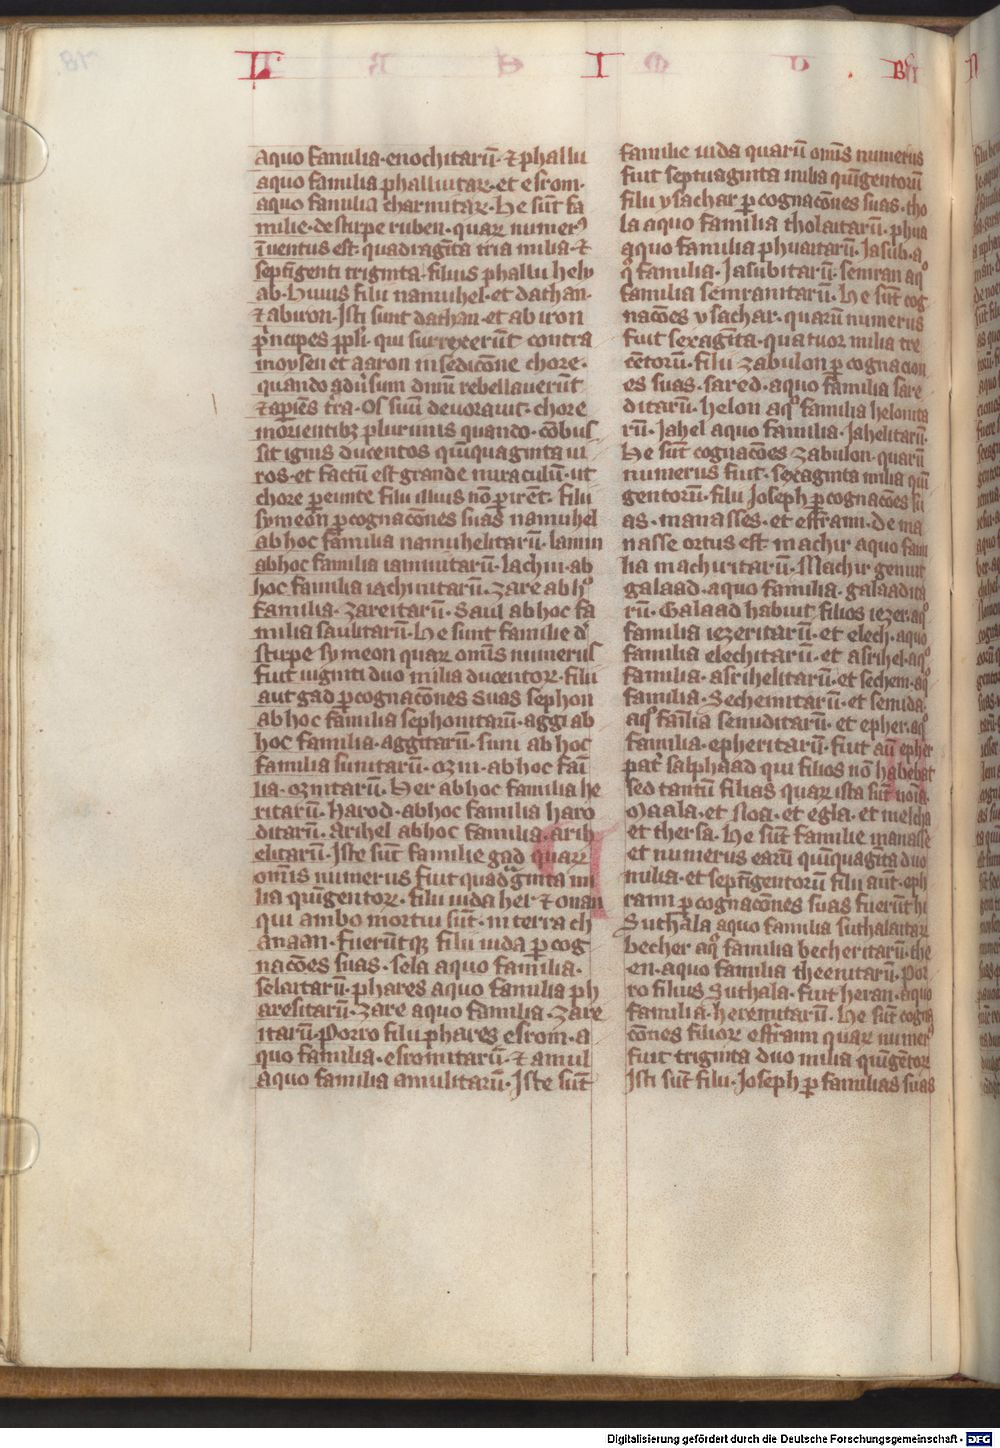 L I BRI
aquo familia·enochitarū·⁊ phallu
aquo familia phalluitaꝝ·et esrom·
aquo familia charmitaꝝ·He sūt fa
milie·destirpe ruben·quaꝝ numerꝰ
īuentus est·quadragīta tria milia·⁊
septīgenti triginta·filius phallu hely
ab·Huius filii namuhel·et dathan·
⁊ abiron·Isti sunt dathan·et ab iron
prīcipes ppli·qui surrexerūt contra
moysen et aaron in sedicōne chore·
quando adūsum dnm̄ rebellauerūt
⁊ apiēs tra·Os suū deuorauit·chore
morientibꝫ plurimis quando·cōbus
sit ignis ducentos quīquaginta ui
ros·et factū est grande miraculū·ut
chore ꝑeunte filii illius nō ꝑirēt·filii
symeon ꝑcognacōnes suas namuhel
ab hoc familia namuhelitarū·lamin
abhoc familia iaminitarū·Iachin·ab
hoc familia iachinitarū·zare ab hᵒ
familia·zareitarū·Saul abhoc fa
milia saulitarū·He sunt familie dͤ
stirpe symeon quaꝝ omīs numerus
fuit uiginti duo milia ducentoꝝ·filii
aut gad ꝑcognacōnes suas sephon
ab hoc familia sephonitarū·aggi ab
hoc familia·aggitarū·suni ab hoc
familia sunitarū·ozni·abhoc fami
lia·oznitarū·Her abhoc familia he
ritarū·Harod·abhoc familia haro
ditarū·Arihel abhoc familia·arih
elitarū·Iste sūt familie gad quaꝝ
omīs numerus fuit quadragīnta mi
lia quīgentoꝝ·filii iuda her ⁊ onan
qui ambo mortui sūt·in terra ch
anaan·fuerūtqꝫ filii iuda ꝑ cog
nacōes suas·sela aquo familia·
selaitarū·phares aquo familia ph
aresitarū·zare aquo familia·zare
itarū·Porro filii phares esrom·a
quo familia·esromitarū·⁊ amul
aquo familia amulitarū·Iste sūt
familie iuda quarū omīs numerus
fuit septuaginta milia quīgentorū
filii ysachar ꝑ cognacōnes suas·tho
la aquo familia tholaitarū·phua
aquo familia phuaitarū·Iasub·a
qᵒ familia·Iasubitarū·semran aqᵒ
familia semranitarū·He sūt cog
nacōes ysachar·quarū numerus
fuit sexagīta·quatuor milia tre
cētorū·filii zabulon ꝑ cognacion
es suas·sared·aquo familia sare
ditarū·helon aqᵒ familia helonita
rū·Iahel aquo familia·Iahelitarū·
He sūt cognacōes zabulon·quarū
numerus fuit·sexaginta milia quī
gentorū·filii Ioseph ꝑcognacōes su
as·manasses·et effraim·de ma
nasse ortus est machir aquo fami
lia machiritarū·Machir genuit
galaad·aquo familia·galaadita
rū·Galaad habuit filios iezer·aqᵒ
familia iezeritarū·et elech·aquo
familia elechitarū·et asrihel·aqᵒ
familia·asrihelitarū·et sechem·aqᵒ
familia·Sechemitarū·et semida·
aqᵒ famīlia semiditarū·et epher·aqᵒ
familia·epheritarū·fuit aū epher
pat salphaad qui filios nō habebat
sed tantū filias quaꝝ ista sūt noīa·
Maala·et Noa·et egla·et melcha
et thersa·He sūt familie manasse
et numerus earū quīquagīta duo
milia·et septīgentorū filii aūt·eph
raim ꝑ cognacōnes suas fuerūt hi
Suthala aquo familia suthalaitaꝝ
becher aqᵒ familia becheritarū·the
en·aquo familia theenitarū·Por
ro filius Suthala·fuit heran·aquo
familia·herenitarū·He sūt cogna
cōnes filioꝝ effraim quaꝝ numerꝰ
fuit triginta duo milia quīgētoꝝ
Isti sūt filii·Ioseph ꝑ familias suas
Digitalisierung gefördert durch die Deutsche Forschungsgemeinschaft - DFG